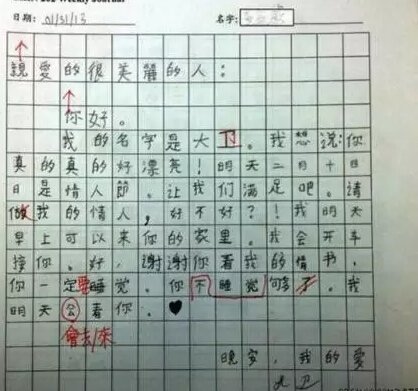 Weekly Journal
日期: 01/31/13 名字:
親愛的很美麗的人:
你好。
我的名字是大卫。我想说:你
真的真的好漂亮!明天二月十四
日是情人節。让我们满足吧。请
做我的情人,好不好?!我明天
早上可以来你的家里。我会开车
接你。好,谢谢你看我的情书,
你一定要睡觉。你不睡觉够了。我
明天会看你。♥
會去/來
晚安,我的爱
大卫